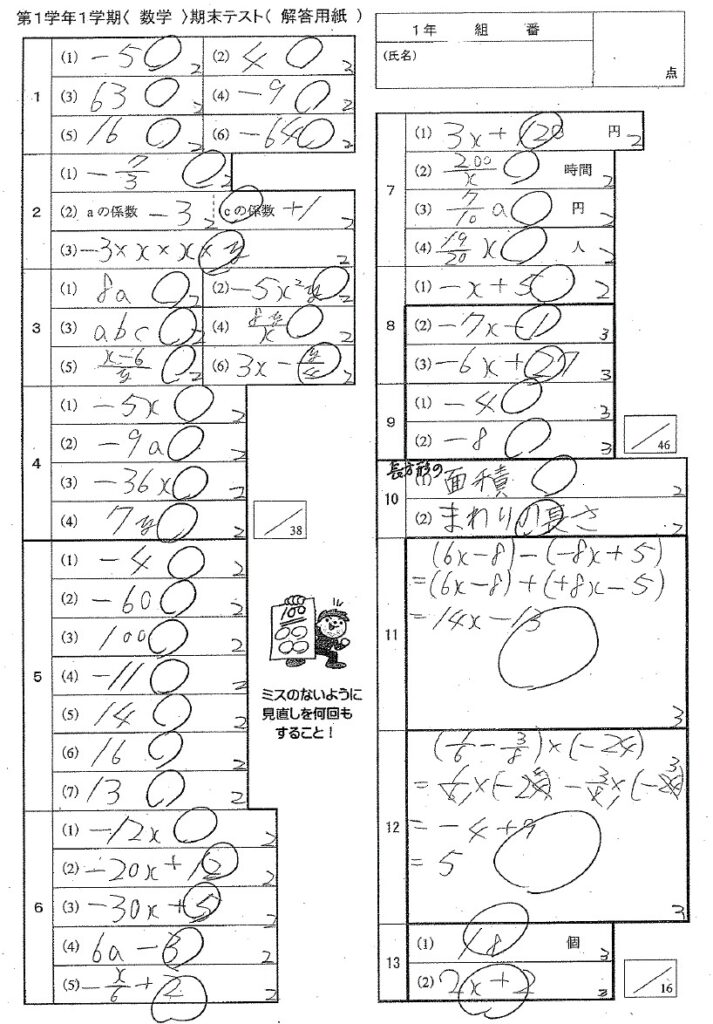 第1学年1学期( 数学 )期末テスト( 解答用紙 )
1年 組 番
(氏名)
点
1
(1) -5 2
(2) 4 2
(3) 63 2
(4) -9 2
(5) 16 2
(6) -64 2
2
(1) -7/3 2
(2) aの係数 -3 2 cの係数 +1 2
(3) -3×x×x×y 2
3
(1) 8a 2
(2) -5x²y 2
(3) abc 2
(4) 8y/x 2
(5) x-6/y 2
(6) 3x - y/4 2
4
(1) -5x 2
(2) -9a 2
(3) -36x 2
(4) 7y 2
/38
5
(1) -4 2
(2) -60 2
(3) 100 2
(4) -11 2
(5) 14 2
(6) 16 2
(7) 13 2
6
(1) -12x 2
(2) -20x+12 2
(3) -30x+5 2
(4) 6a-3 2
(5) -x/6+2 2
100
ミスのないように
見直しを何回も
すること!
7
(1) 3x+120 円 2
(2) 200/x 時間 2
(3) 7/10 a 円 2
(4) 19/20 x 人 2
8
(1) -x+5 2
(2) -7x-1 3
(3) -6x+27 3
9
(1) -4 3
(2) -8 3
/46
10
長方形の
(1) 面積 2
(2) まわりの長さ 2
11
(6x-8)-(-8x+5)
=(6x-8)+(+8x-5)
=14x-13
3
12
(1/6-3/8)×(-24)
=1/6×(-24)-3/8×(-24)
=-4+9
=5
3
13
(1) 18 個 3
(2) 2x+2 3
/16